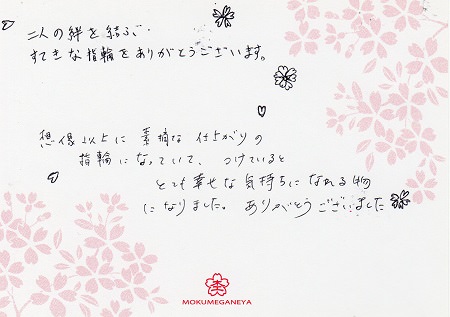 二人の絆を結ぶ
すてきな指輪をありがとうございます。
想像以上に素敵な仕上がりの
指輪になっていて、つけていると
とても幸せな気持ちになれる物
になりました。ありがとうございました
MOKUMEGANEYA